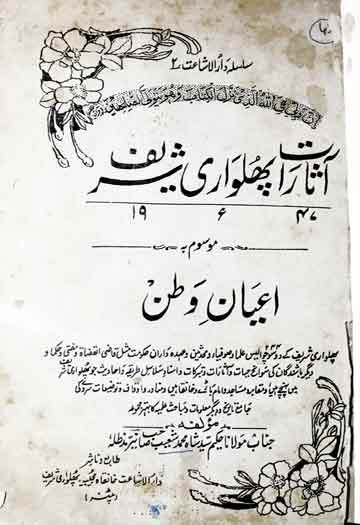 سلسلہ دار الاشاعت ۲
ان ولی اللہ الذی نزل الکتاب وھو یتولی الصالحین
آثارات پھلواری شریف
۱۹۴۷
موسوم بہ
اعیان وطن
پھلواری شریف کے دو سو چوالیس علماء وصوفیاء ومحدثین وعہدہ داران حکومت مثل قاضی القضاۃ ومفتی وحکماء و
دیگر باشندگان کی سوانح حیات وآثارات وتبرکات واسناد وسلاسل طریقہ واحادیث جو پھلواری شریف
میں پہنچے ہیں ومقابر مساجد وامام باڑے وخانقاہیں ونوادر واوقاف وتوضیحات سرے کی
جامع تاریخ ودیگر معلومات ومباحث علمیہ کا بہتر مجموعہ
مؤلفہ
جناب مولانا حکیم سید شاہ محمد شعیب صاحب نیر مدظلہ
طابع و ناشر
دار الاشاعت خانقاہ مجیبیہ پھلواری شریف
(پٹنہ)